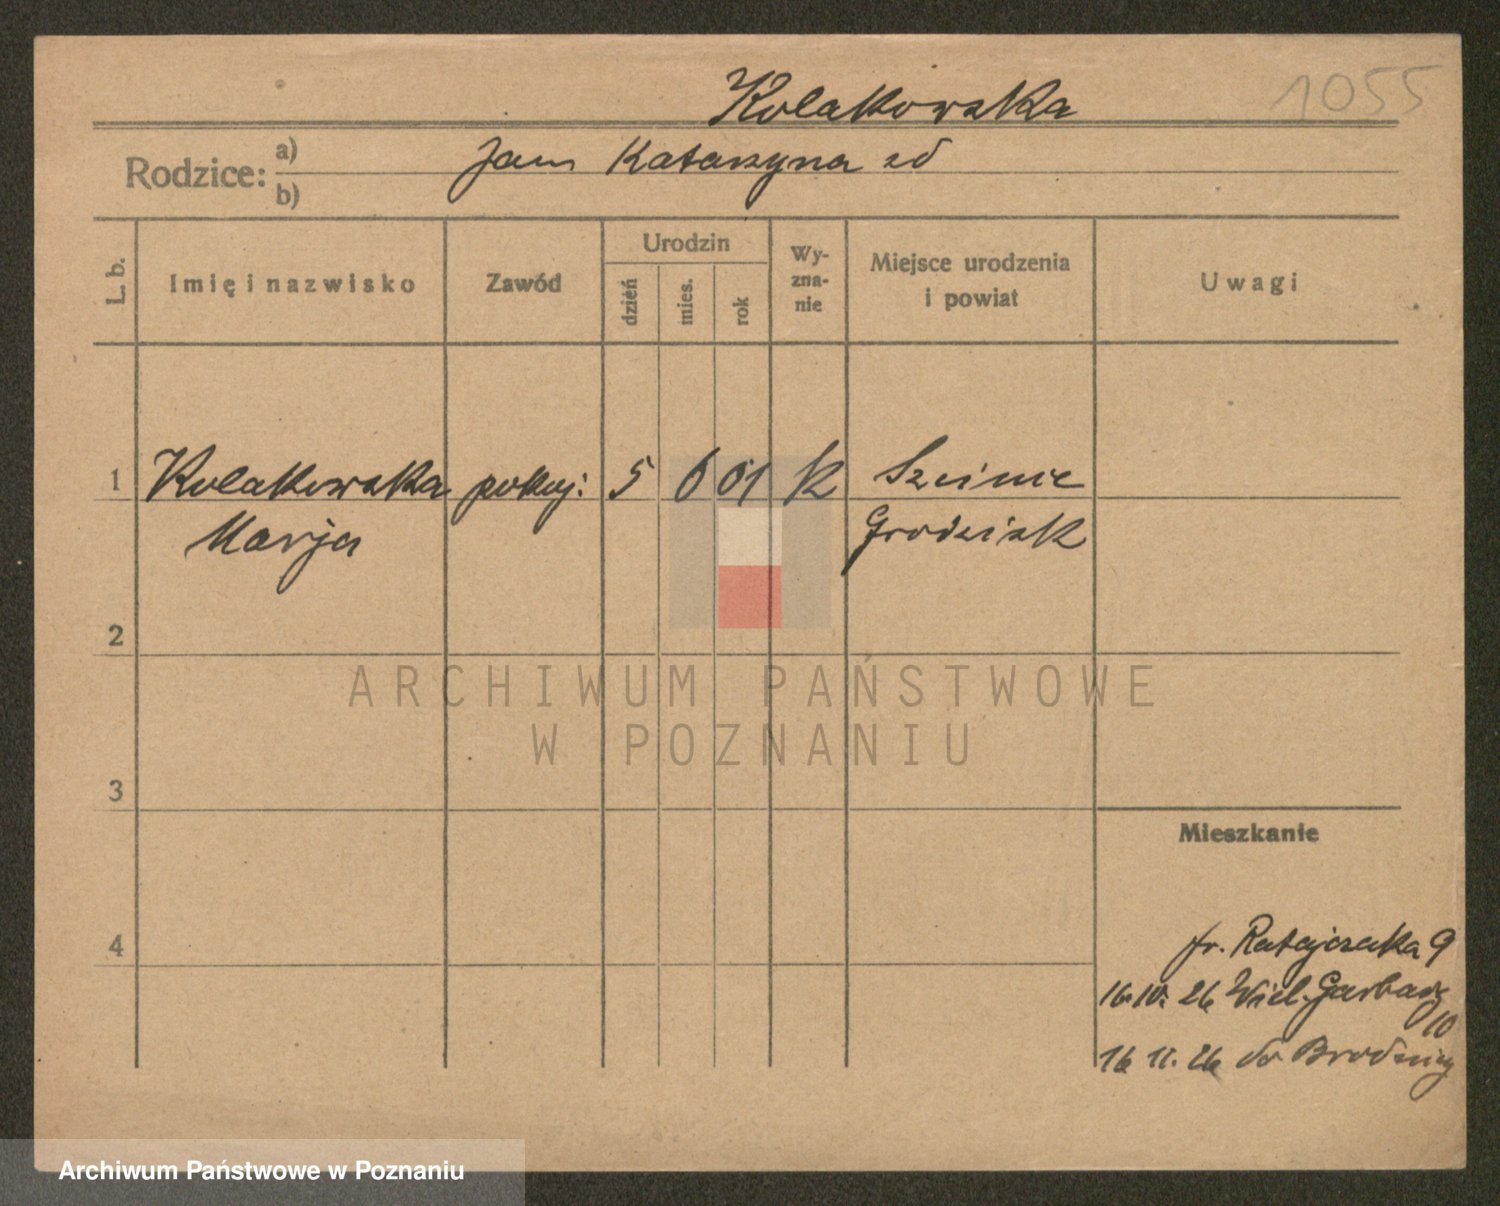 Kolatkowska 1055
Rodzice: a) Jan Katarzyna zd
b)
L. b. Imię i nazwisko Zawód Urodzin dzień mies. rok Wy-zna-nie Miejsce urodzenia i powiat Uwagi
1 Kolatkowska pokoj: 5 6 01 K
Marja Grodzisk
2
ARCHIWUM PAŃSTWOWE
W POZNANIU
3
Mieszkanie
4
fr. Ratajczaka 9
16. 10. 26 Wiel. Garbary
10
16 11. 26 do Brodnicy
Archiwum Państwowe w Poznaniu